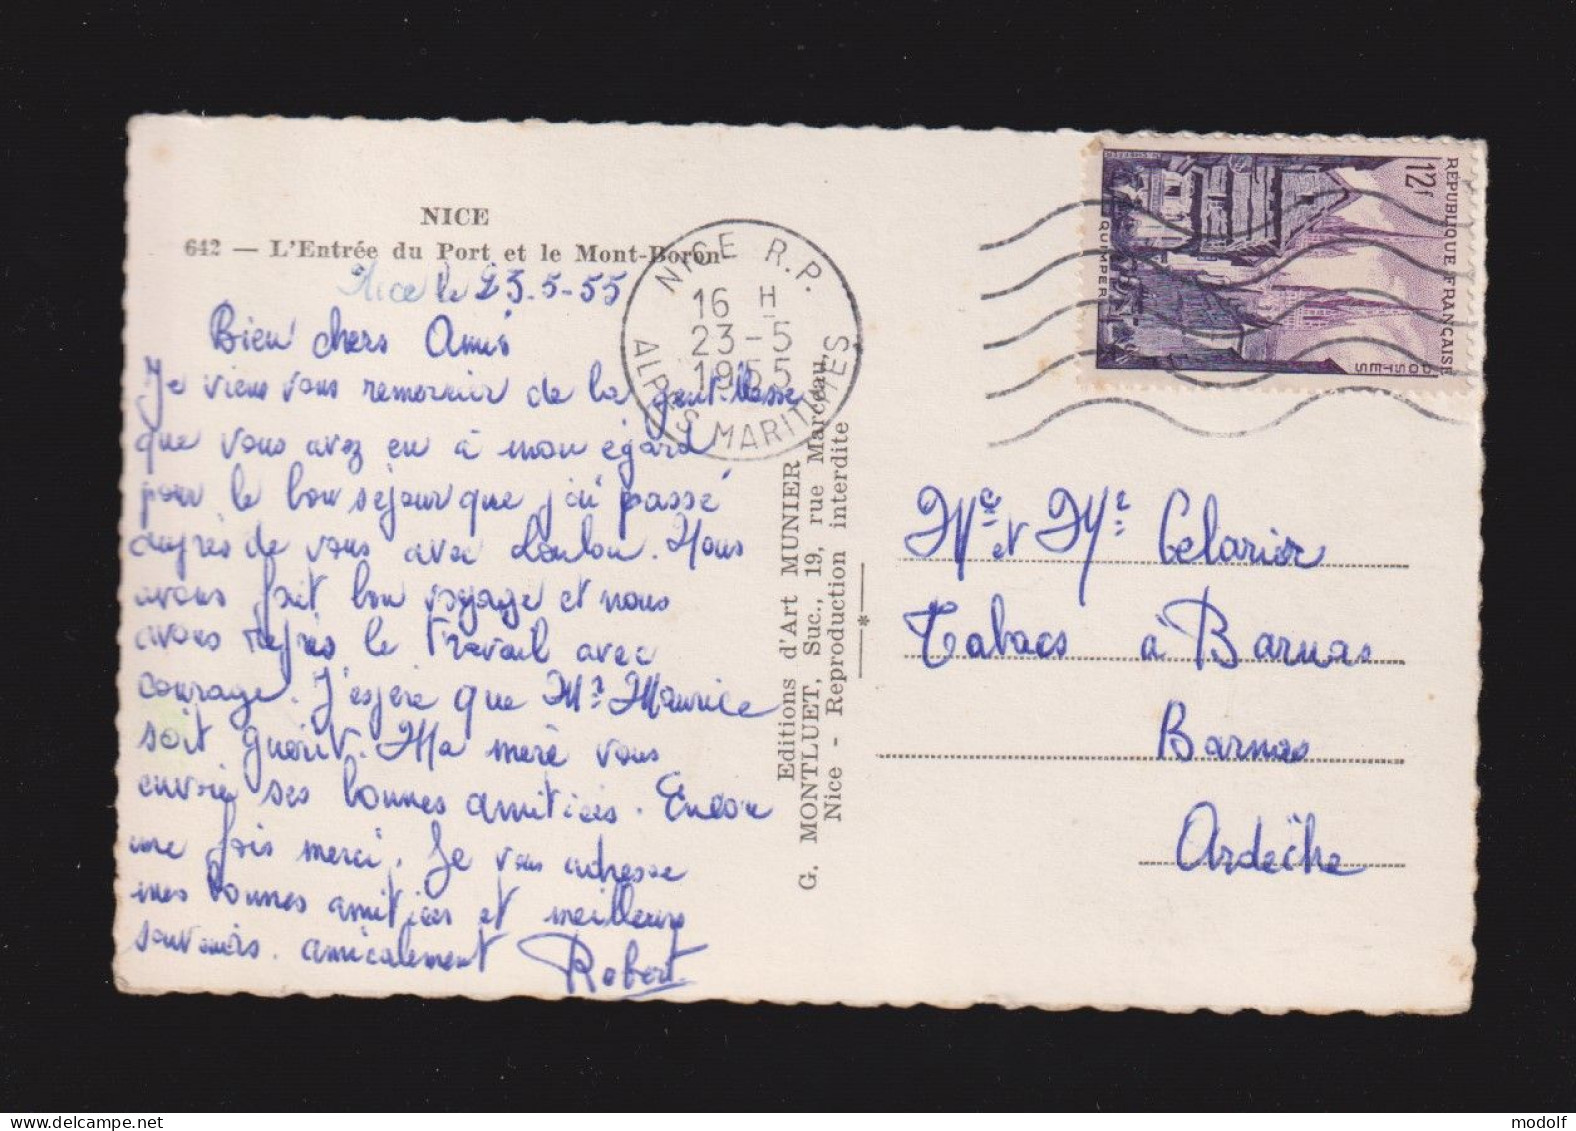 NICE
642 — L'Entrée du Port et le Mont-Boron
Nice le 23-5-55
Bien chers Amis
Je viens vous remercier de la gentillesse
que vous avez eu à mon égard
pour le bon séjour que j'ai passé
auprès de vous avec Loulou. Nous
avons fait bon voyage et nous
avons repris le travail avec
courage. J'espère que Mr Maurice
soit guérit. Ma mère vous
envoie ses bonnes amitiés. Encore
une fois merci. Je vous adresse
mes bonnes amitiés et meilleurs
souvenirs. amicalement Robert
NICE R.P.
16 H
23-5
1955
ALPES MARITIMES
Editions d'Art MUNIER
G. MONTLUET, Suc., 19, rue Marceau,
Nice - Reproduction interdite
*
RÉPUBLIQUE FRANÇAISE
POSTES
12f
QUIMPER
Me et Mr Celarier
Tabacs à Barnas
Barnas
Ardèche
www.delcampe.net
modolf